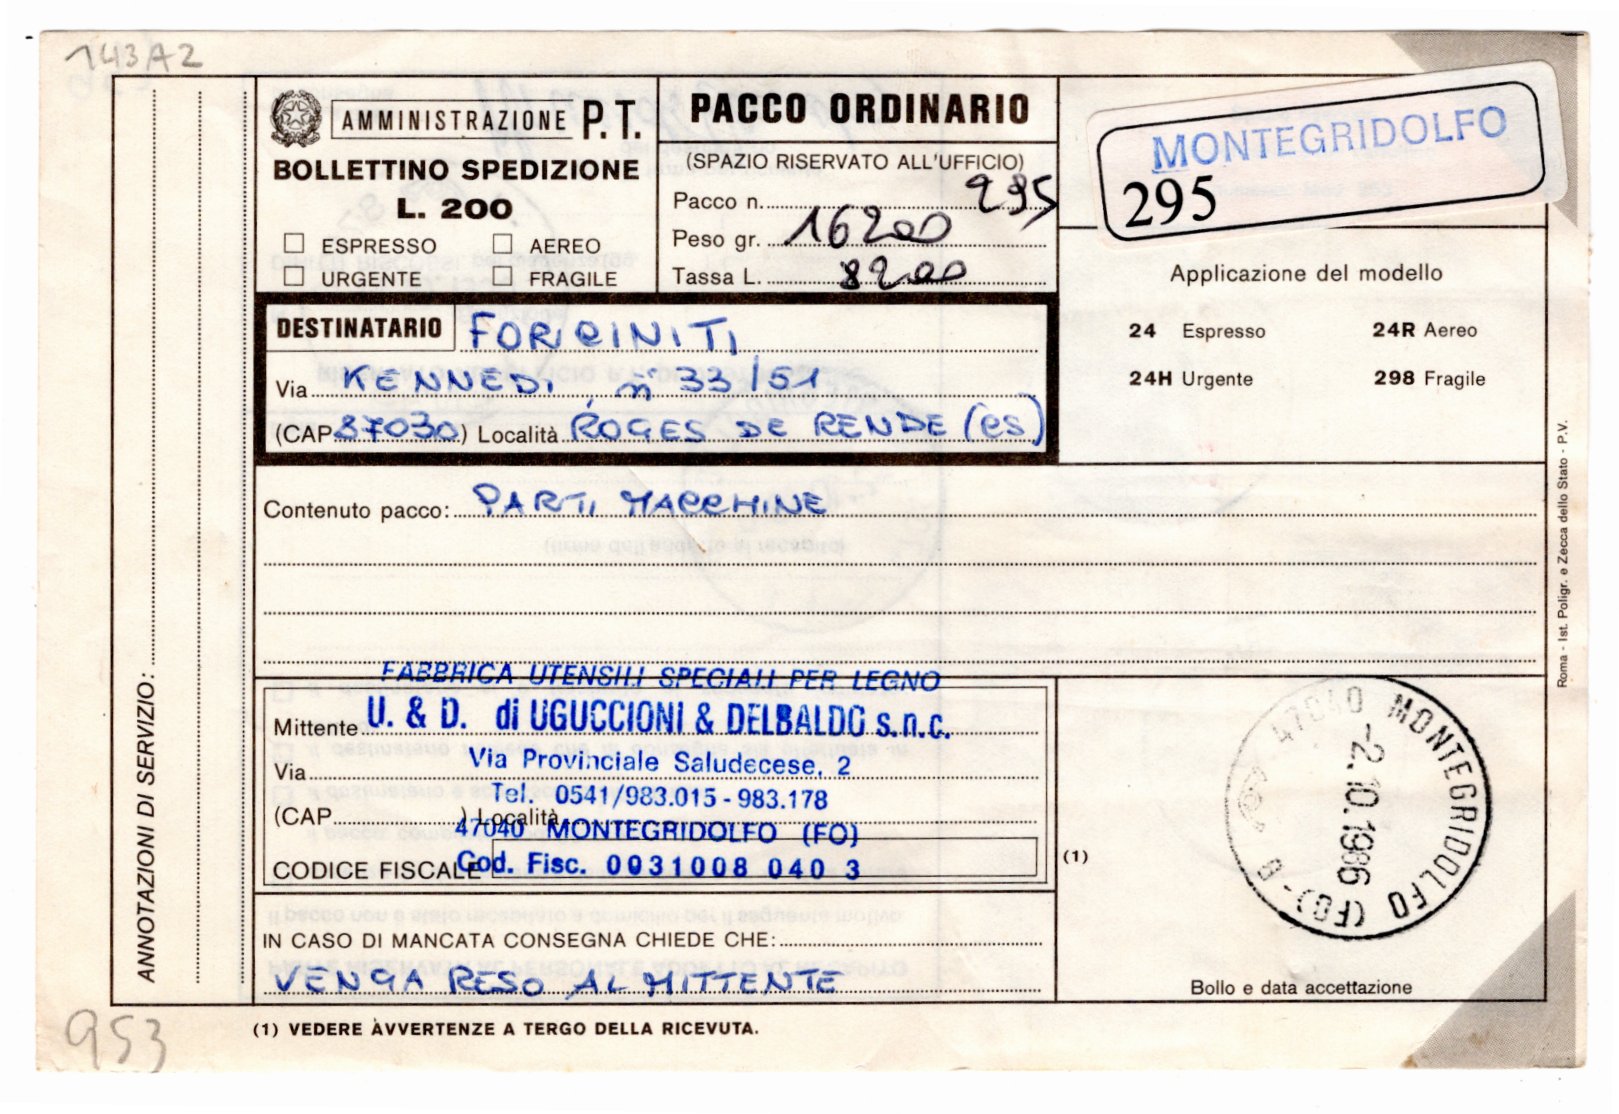 143A2
AMMINISTRAZIONE P.T.
BOLLETTINO SPEDIZIONE
L. 200
ESPRESSO
AEREO
URGENTE
FRAGILE
PACCO ORDINARIO
(SPAZIO RISERVATO ALL'UFFICIO)
Pacco n. 295
Peso gr. 16200
Tassa L. 8200
MONTEGRIDOLFO
295
Applicazione del modello
24 Espresso
24R Aereo
24H Urgente
298 Fragile
DESTINATARIO FORICINITI
Via KENNEDI, n° 33/51
(CAP 87030) Località ROGES DE RENDE (CS)
Contenuto pacco: PARTI MACCHINE
FABBRICA UTENSILI SPECIALI PER LEGNO
Mittente U. & D. di UGUCCIONI & DELBALDO s.n.c.
Via Via Provinciale Saludecese, 2
Tel. 0541/983.015 - 983.178
(CAP ) Località
47040 MONTEGRIDOLFO (FO)
CODICE FISCALE Cod. Fisc. 0031008 040 3
IN CASO DI MANCATA CONSEGNA CHIEDE CHE:
VENGA RESO AL MITTENTE
(1)
47040 MONTEGRIDOLFO (FO) - B
-2.10.1986
Bollo e data accettazione
(1) VEDERE AVVERTENZE A TERGO DELLA RICEVUTA.
ANNOTAZIONI DI SERVIZIO:
Roma - Ist. Poligr. e Zecca dello Stato - P.V.
953